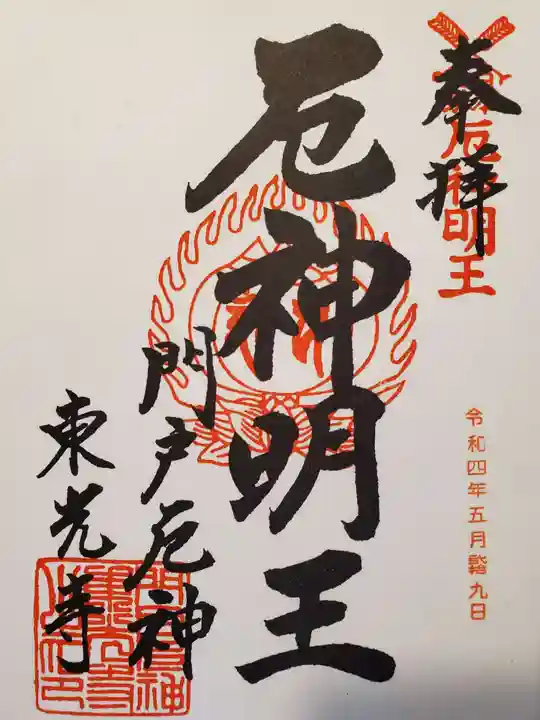 奉拝
厄神明王
令和四年五月 九日
厄神明王
門戸厄神
東光寺